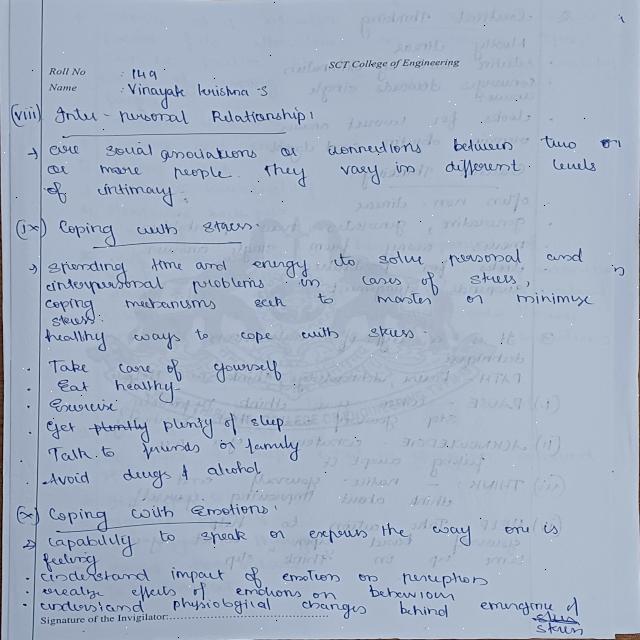 SCT College of Engineering
Roll No : 149
Name : Vinayak krishna S
(viii) Inter-Personal Relationship:
→ are social associations or connections between two or
or more people. They vary in different levels
of intimacy.
(ix) Coping with stress:
→ spending time and energy to solve personal and
interpersonal problems in cases of stress, in
coping mechanisms seek to master or minimize
stress.
healthy ways to cope with stress -
· Take care of yourself
· Eat healthy
· Exercise
· Get plently plenty of sleep
· Talk to friends or family
· Avoid drugs & alcohol
(x) Coping with Emotions:
→ capability to speak or express the way one is
feeling
· understand impact of emotion on perception
· realize effects of emotions on behaviour
· understand physiological changes behind emergence of
stress
Signature of the Invigilator: